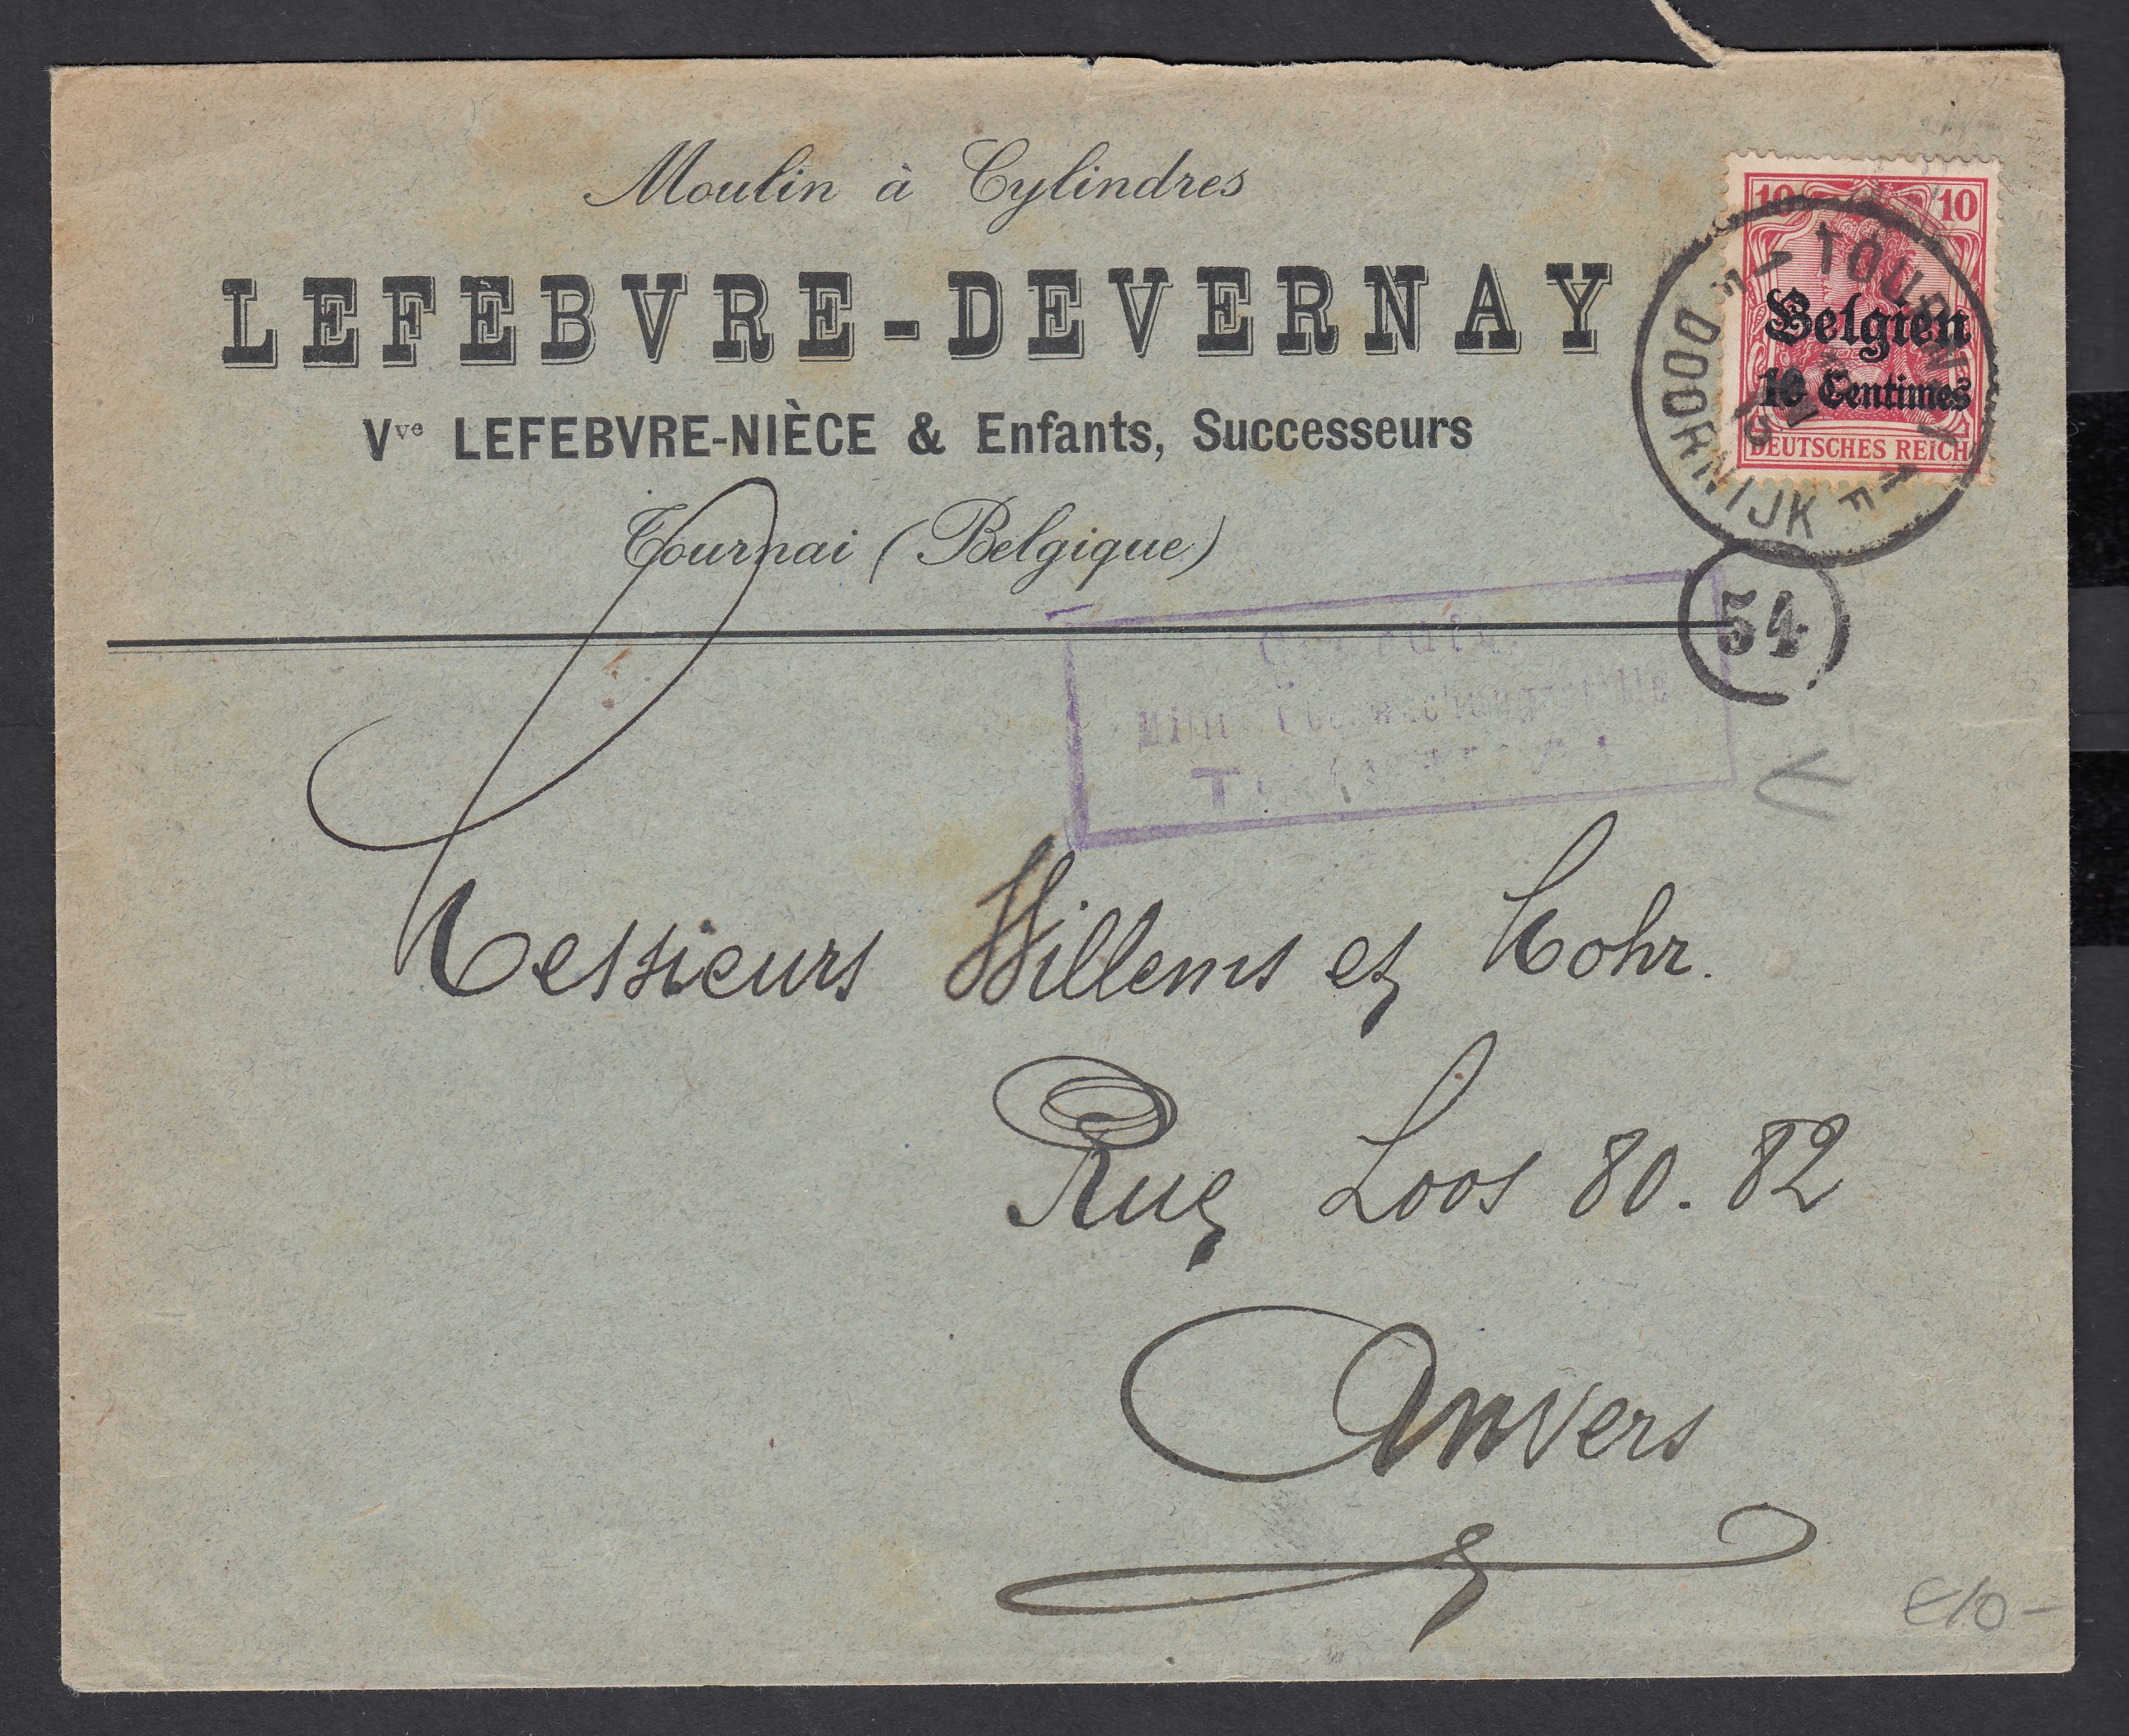 Moulin à Cylindres
LEFEBVRE-DEVERNAY
Vve LEFEBVRE-NIÈCE & Enfants, Successeurs
Tournai (Belgique)
10 10
Belgien
10 Centimes
DEUTSCHES REICH
DOORNIJK
54
Messieurs Willems et Mohr.
Rue Loos 80.82
Anvers
€10-